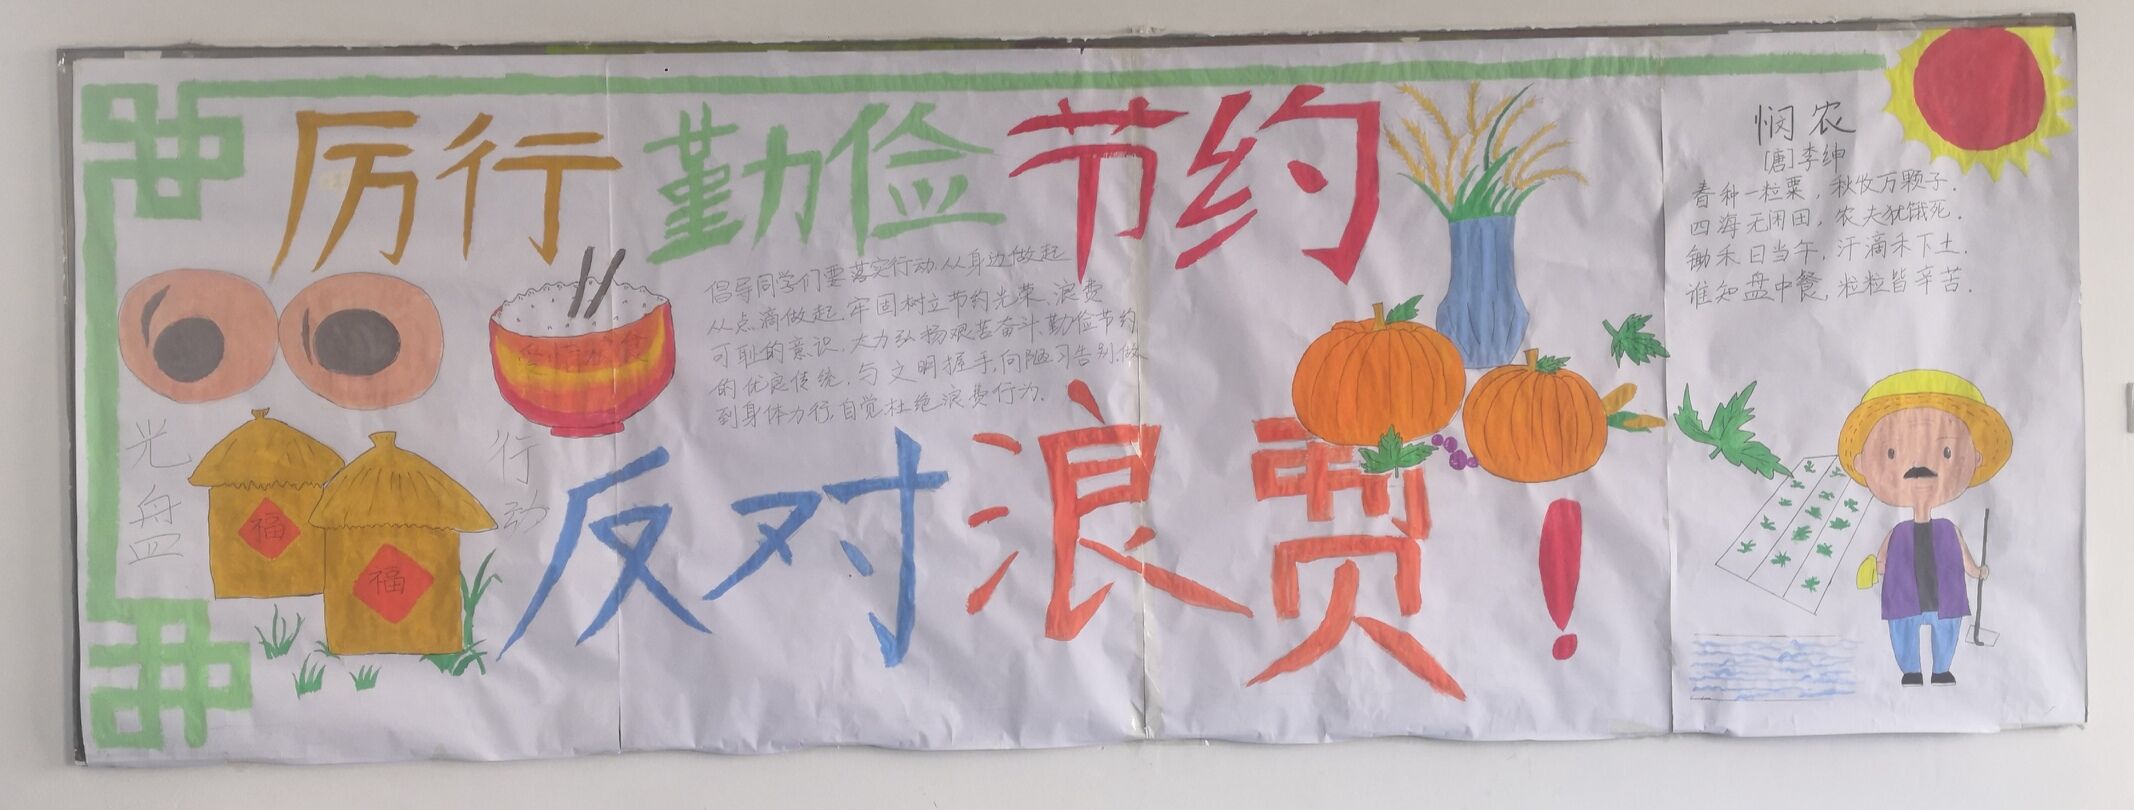 厉行勤俭节约
反对浪费！
倡导同学们要落实行动、从身边做起
从点滴做起、牢固树立节约光荣、浪费
可耻的意识、大力弘扬艰苦奋斗、勤俭节约
的优良传统、与文明握手、向陋习告别、做
到身体力行、自觉杜绝浪费行为.
爱惜粮食
光盘
行动
福
福
悯农
[唐]李绅
春种一粒粟，秋收万颗子.
四海无闲田，农夫犹饿死.
锄禾日当午，汗滴禾下土.
谁知盘中餐，粒粒皆辛苦.